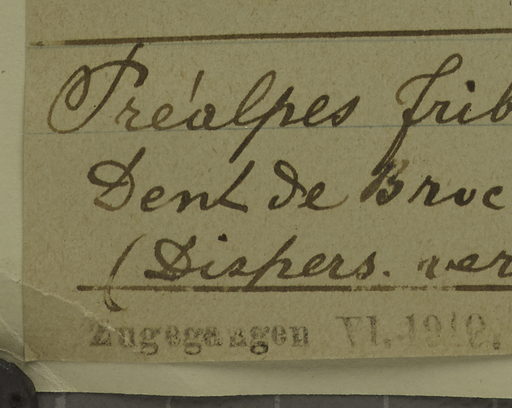 Préalpes frib
Dent de Broc
(Dispers. ver
Zugegangen VI. 19